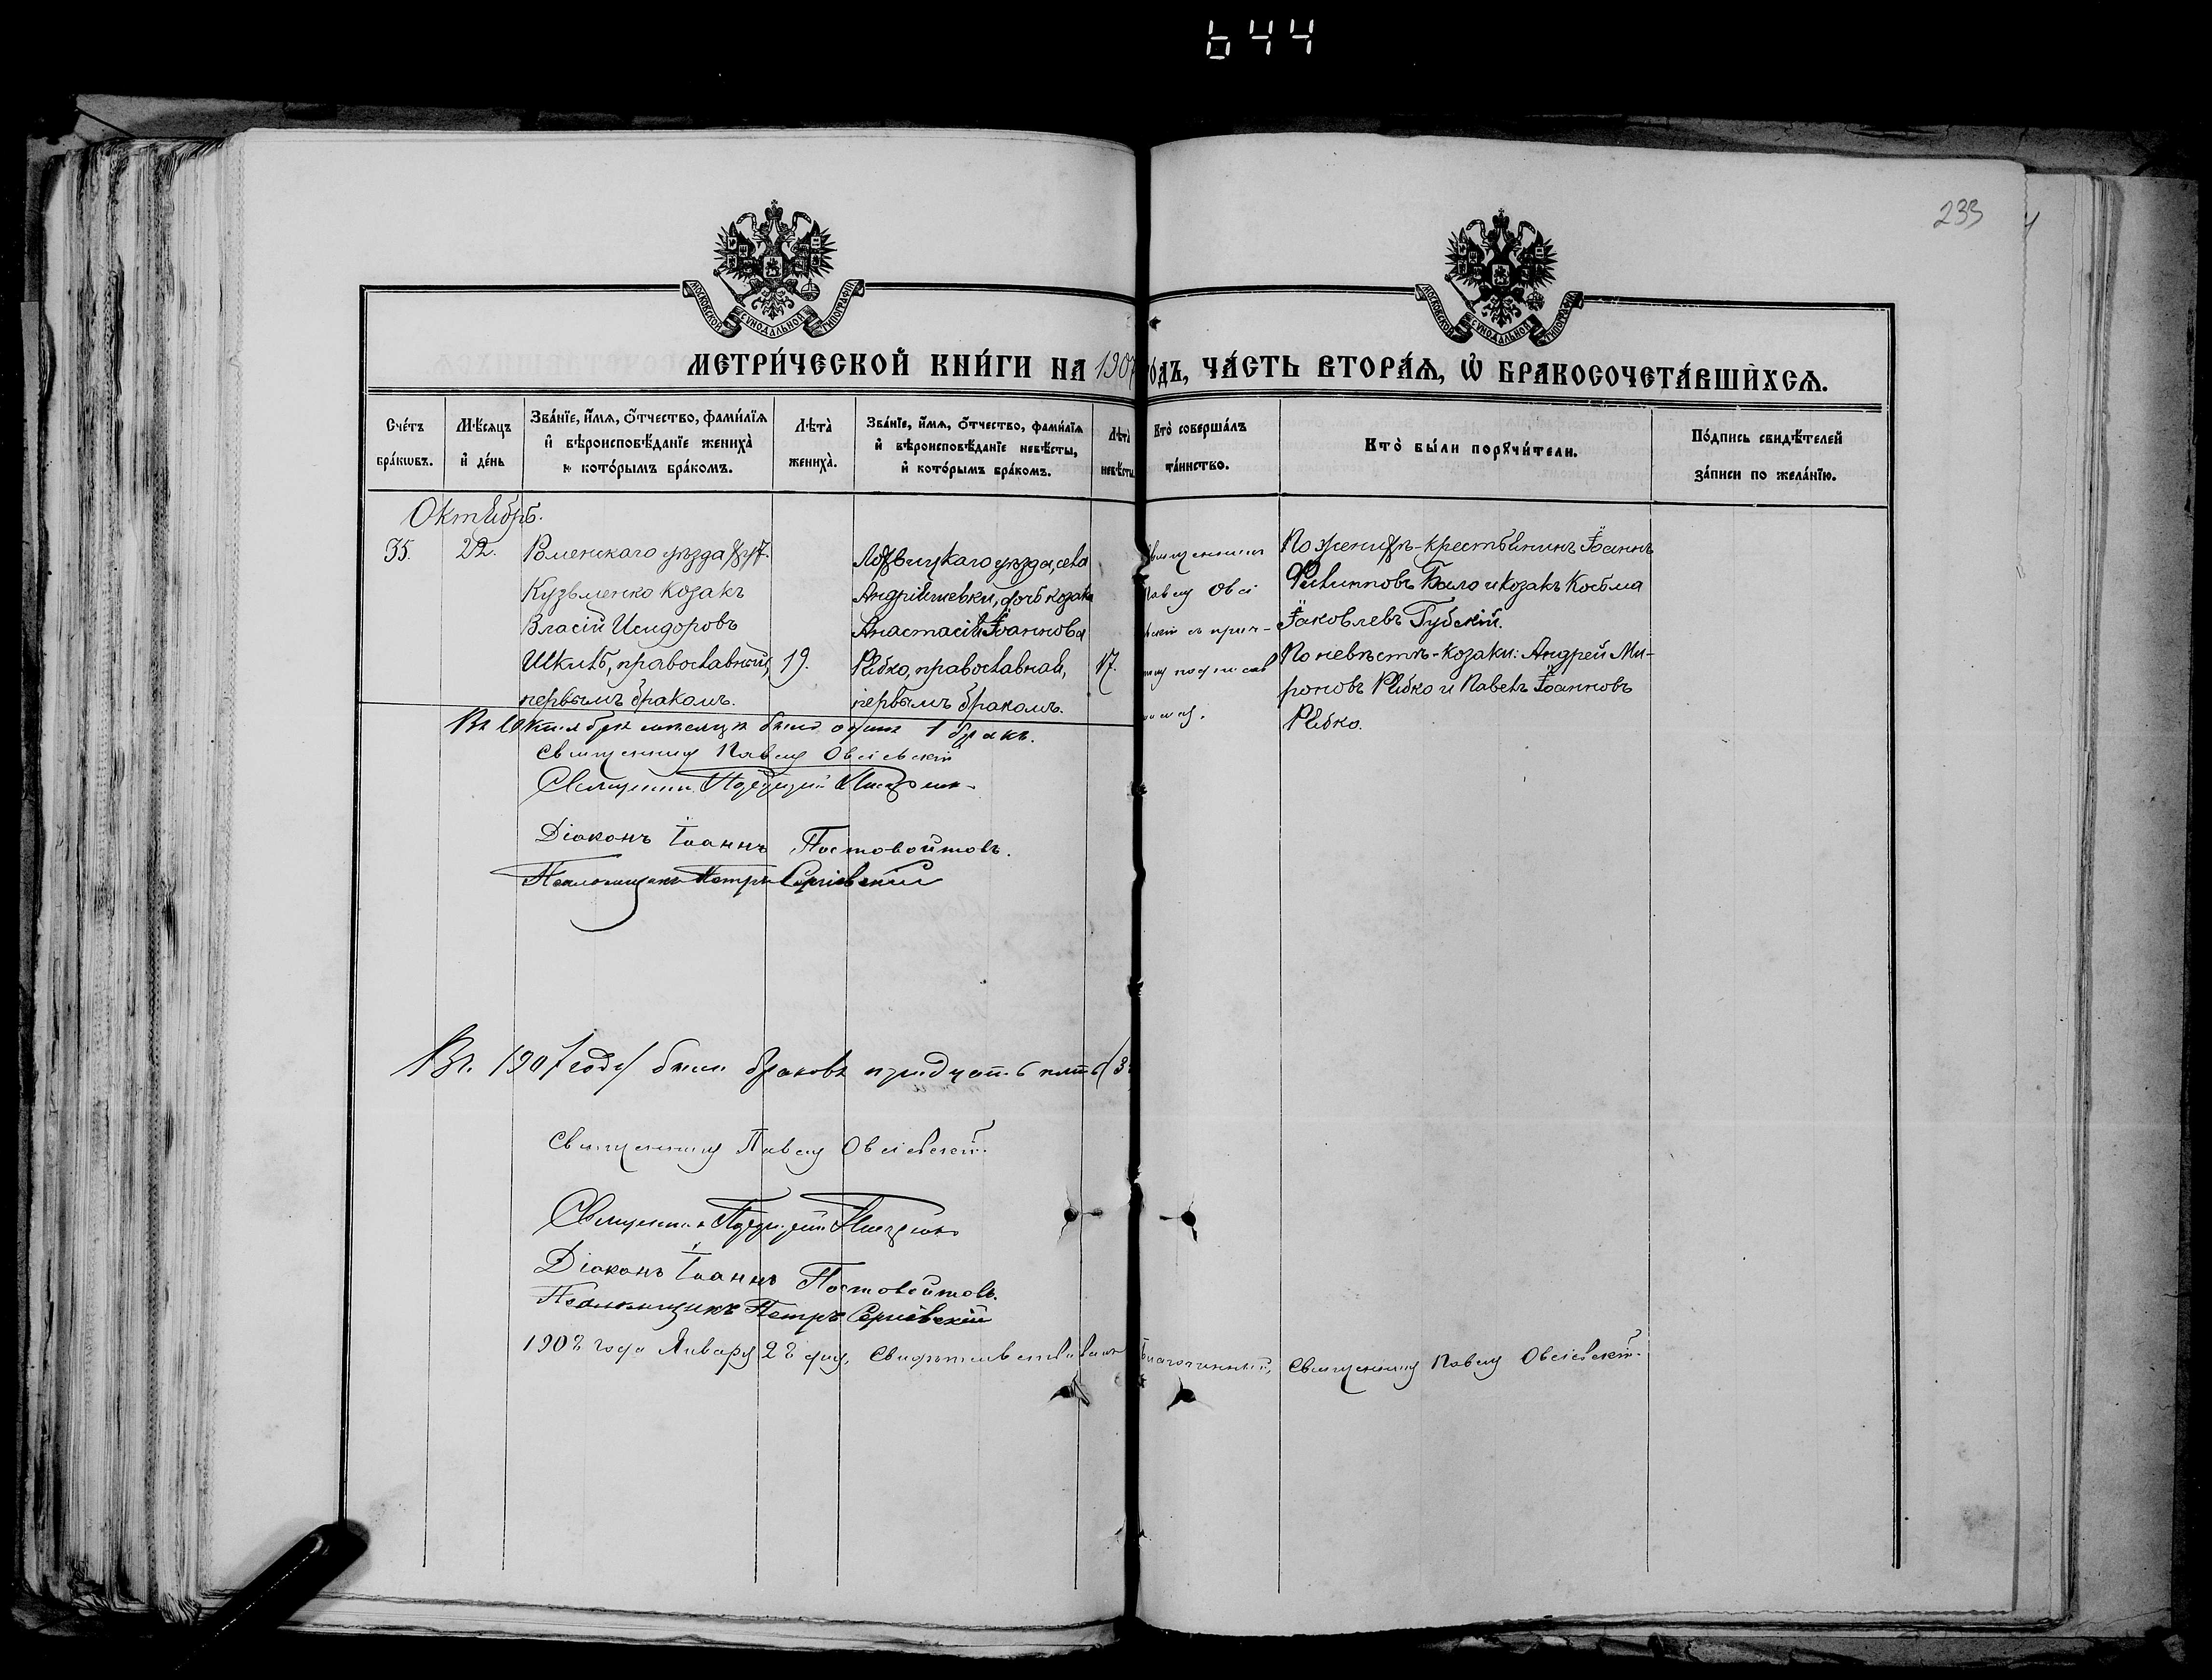 644
233
МОСКОВСКОЙ СѴНОДАЛЬНОЙ ТИПОГРАФІИ
МОСКОВСКОЙ СѴНОДАЛЬНОЙ ТИПОГРАФІИ
МЕТРИ́ЧЕСКОЙ КНИ́ГИ НА 1907 го́дъ, ЧА́СТЬ ВТОРА́Ѧ, Ѡ҆ БРАКОСОЧЕТА́ВШИХСѦ.
Сче́тъ бра́кѡвъ.
Мѣ́сѧцъ и҆ де́нь
Зва́нїе, и҆́мѧ, ѻ҆́тчество, фами́лїѧ и҆ вѣроисповѣ́данїе жениха̀ и кото́рымъ бра́комъ.
Лѣта̀ жениха̀.
Зва́нїе, и҆́мѧ, ѻ҆́тчество, фами́лїѧ и҆ вѣроисповѣ́данїе невѣ́сты, и҆ кото́рымъ бра́комъ.
Лѣта̀ невѣ́сты
Кто̀ соверша́лъ та́инство.
Кто̀ бы́ли порꙋчи́тели.
По́дпись свидѣ́телей за́писи по жела́нїю.
Октябрь.
35.
22.
Роменскаго уѣзда, хут.
Кузьменко козакъ
Власій Исидоровъ
Шкиль, православный,
первымъ бракомъ.
19.
Лохвицкаго уѣзда, села
Андріяшевки, дочь козака
Анастасія Іоаннова
Рябко, православная,
первымъ бракомъ.
17.
Священникъ
Павелъ Овсі
евскій съ прич-
По женихѣ-крестьянинъ Іоаннъ
Филипповъ Бало и козакъ Косьма
Іаковлевъ Губскій.
По невѣстѣ-козаки: Андрей Ми-
роновъ Рябко и Павелъ Іоанновъ
Рябко.
Въ Октябрѣ мѣсяцѣ былъ одинъ 1 бракъ.
Священникъ Павелъ Овсіевскій
Священникъ
Діаконъ Іоаннъ Постовойтовъ.
Псаломщикъ Петръ Сергіевскій
Въ 1907 году было браковъ тридцать пять (3
Священникъ Павелъ Овсіевскій.
Священникъ
Діаконъ Іоаннъ Постовойтовъ.
Псаломщикъ Петръ Сергіевскій
1908 года Января 28 дня, Свидѣтельствовалъ Благочинный, Священникъ Павелъ Овсіевскій.